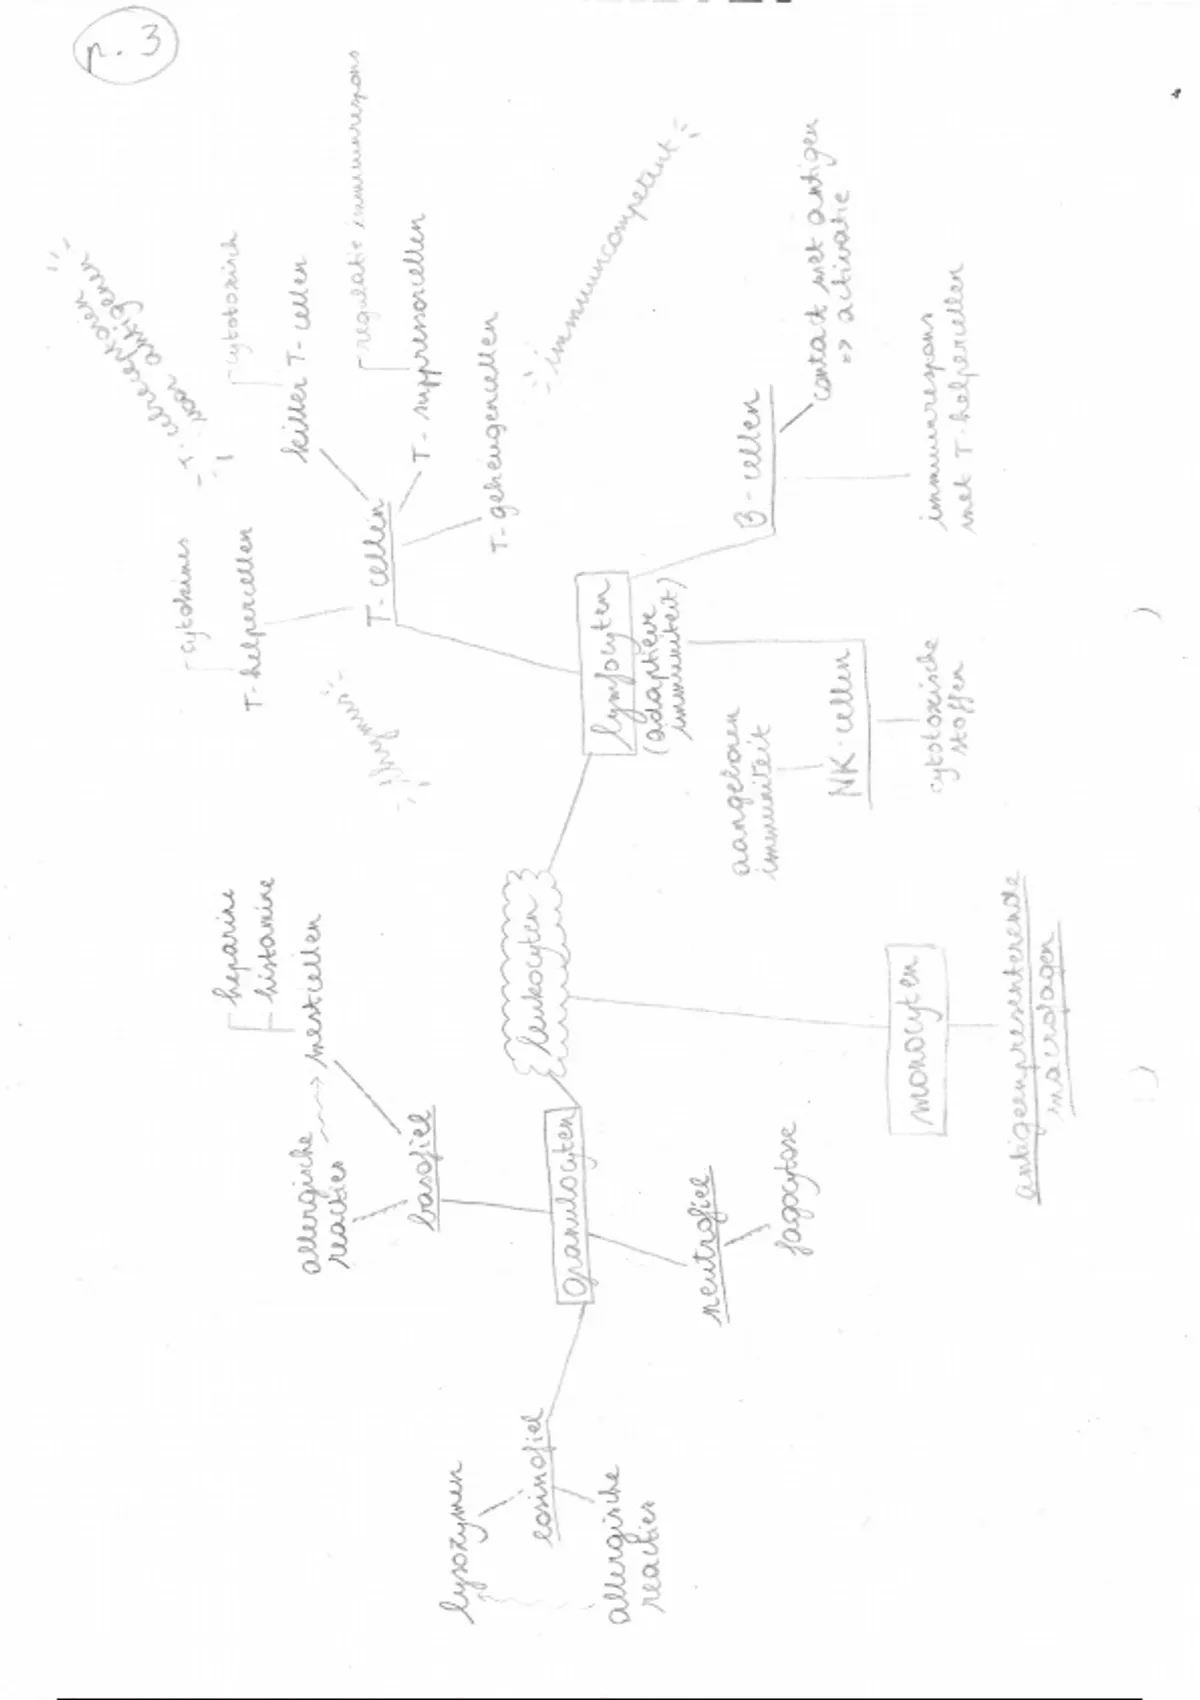 p. 3
leukocyten
granulocyten
eosinofiel
lysozymen
allergische
reacties
basofiel
allergische
reacties
mestcellen
heparine
histamine
neutrofiel
fagocytose
monocyten
antigeenpresenterende
macrofagen
lymfocyten
(adaptieve
immuniteit)
T-cellen
T-helpercellen
cytokines
killer T-cellen
cytotoxisch
T-suppressorcellen
regulatie immuunrespons
T-geheugencellen
thymus
T-celreceptoren
voor antigenen
immuuncompetent
B-cellen
contact met antigen
=> activatie
immuunrespons
met T-helpercellen
NK-cellen
aangeboren
immuniteit
cytotoxische
stoffen